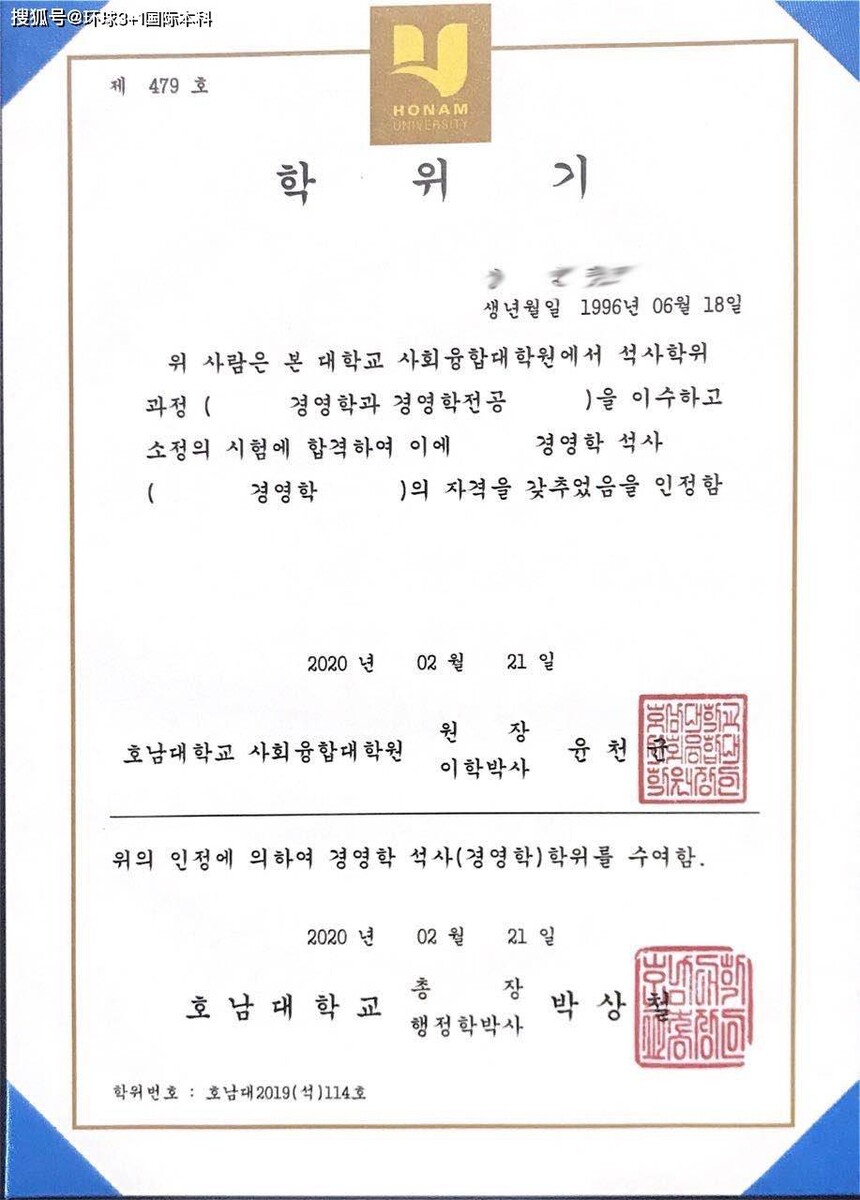 搜狐号@环球3+1国际本科
제 479 호
HONAM
UNIVERSITY
학 위 기
생년월일 1996년 06월 18일
위 사람은 본 대학교 사회융합대학원에서 석사학위
과정 ( 경영학과 경영학전공 )을 이수하고
소정의 시험에 합격하여 이에 경영학 석사
( 경영학 )의 자격을 갖추었음을 인정함
2020 년 02 월 21 일
호남대학교 사회융합대학원 원 장 이학박사 윤 천 균
위의 인정에 의하여 경영학 석사(경영학)학위를 수여함.
2020 년 02 월 21 일
호 남 대 학 교 총 장 행정학박사 박 상 철
학위번호 : 호남대2019(석)114호